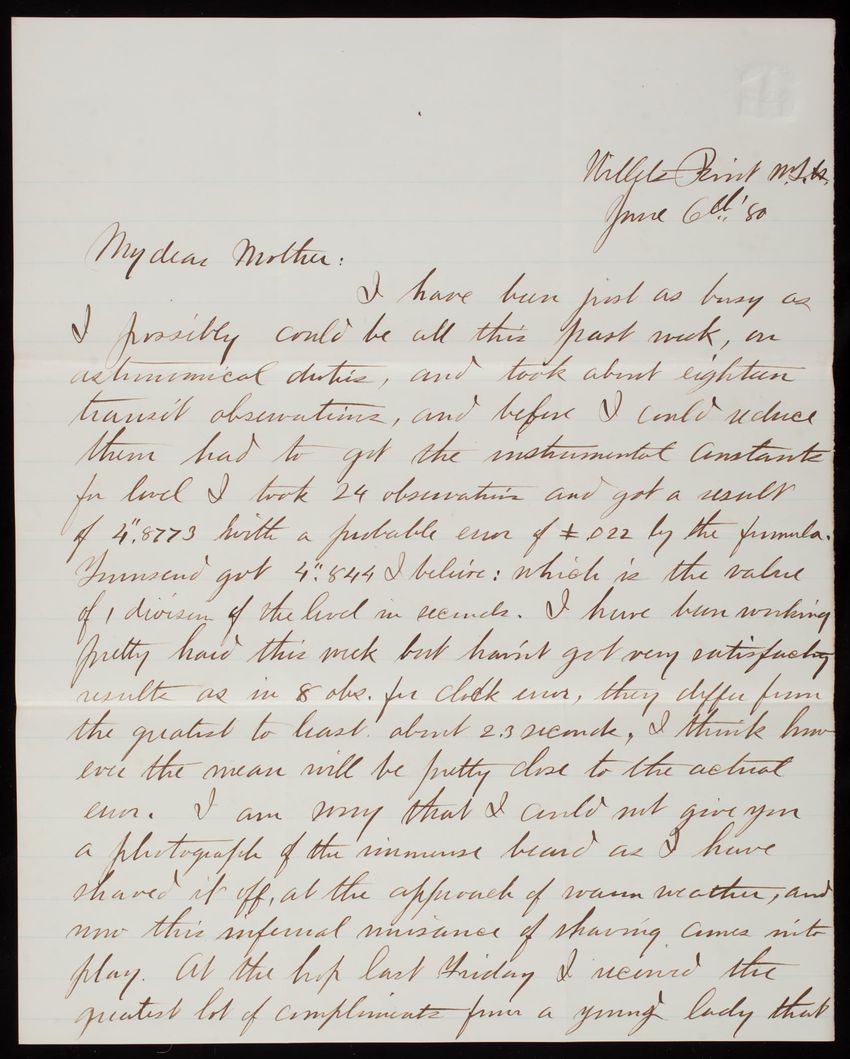 Willets Point N.Y.H.
June 6th '80
My dear Mother:
I have been just as busy as
I possibly could be all this past week, on
astronomical duties, and took about eighteen
transit observations, and before I could reduce
them had to get the instrumental constants
for level I took 24 observations and got a result
of 4".8773 with a probable error of ±.022 by the formula.
Townsend got 4".844 I believe: which is the value
of 1 division of the level in seconds. I have been working
pretty hard this week but havn't got very satisfactory
results as in 8 obs. for clock error, they differ from
the greatest to least about 2.3 seconds, I think how-
ever the mean will be pretty close to the actual
error. I am sorry that I could not give you
a photograph of the immense beard as I have
shaved it off, at the approach of warm weather, and
now this infernal nuisance of shaving comes into
play. At the hop last Friday I received the
greatest lot of compliments from a young lady that